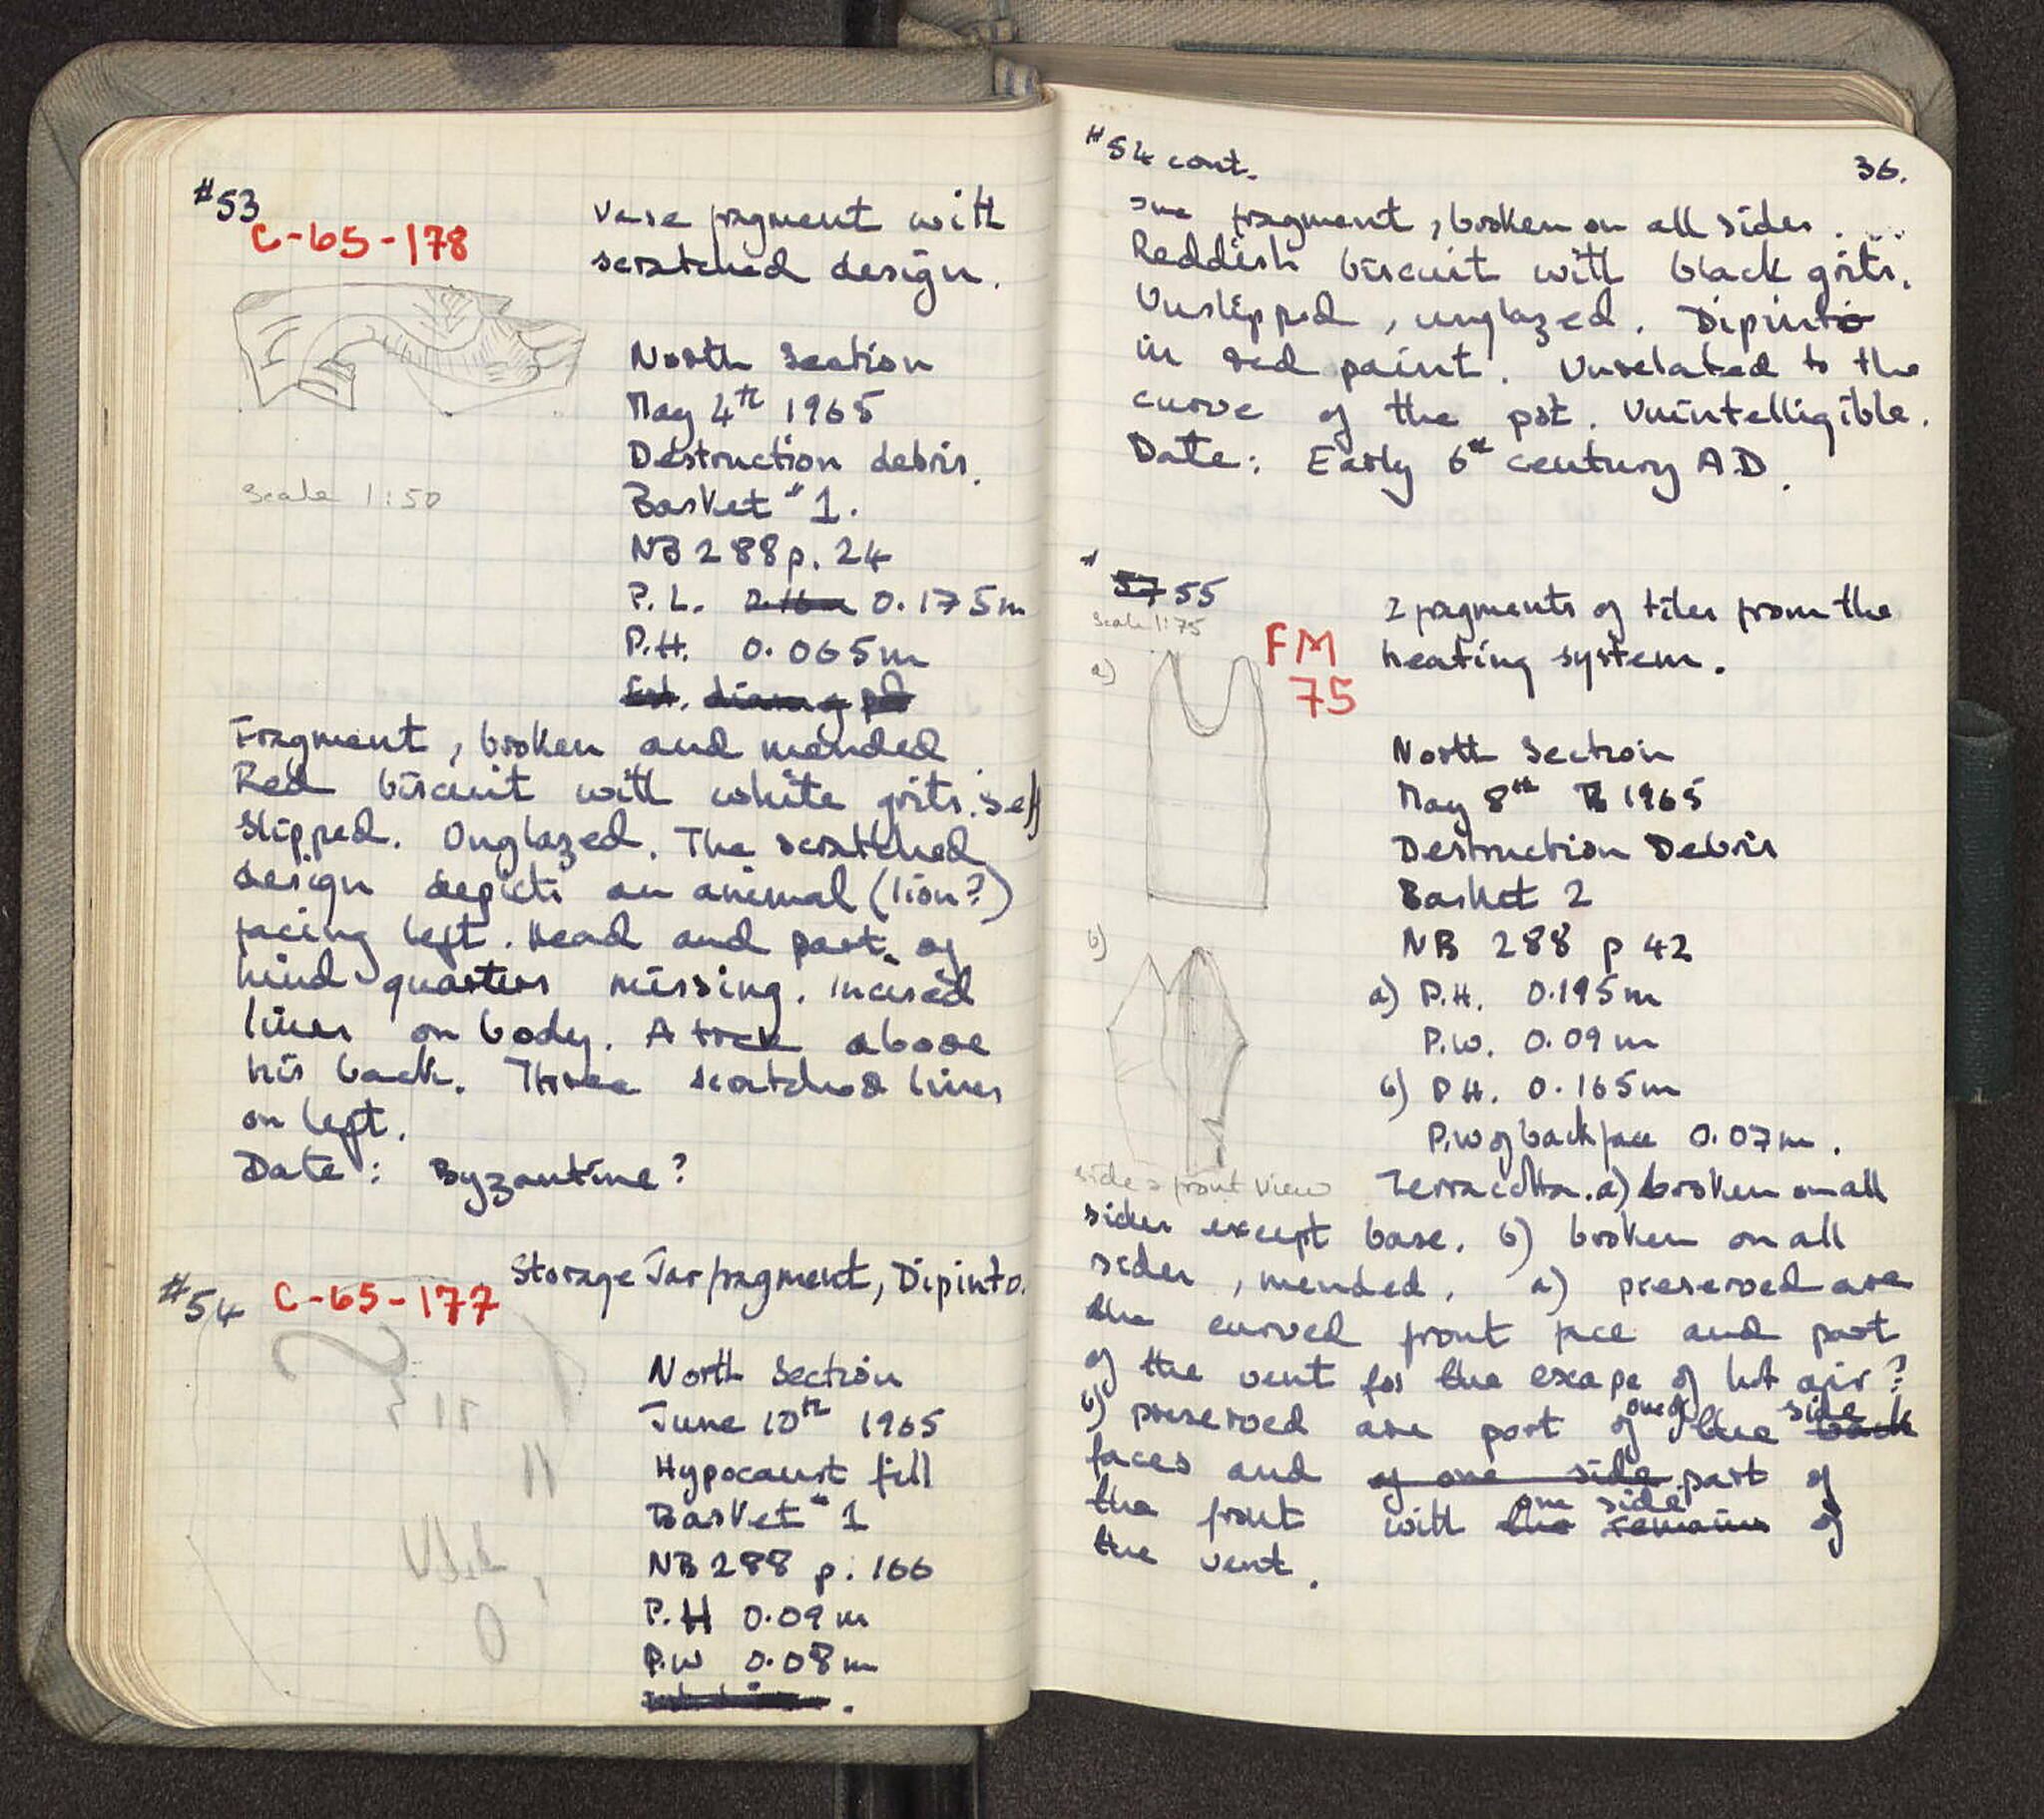 #53
C-65-178
Vase fragment with
scratched design.
North Section
May 4th 1965
Destruction debris.
Scale 1:50
Basket #1.
NB 288 p. 24
P.L. 0.16m 0.175m
P.H. 0.065m
Est. diam of
Fragment, broken and mended.
Red biscuit with white grits. Self
slipped. Unglazed. The scratched
design depicts an animal (lion?)
facing left. Head and part of
hind quarters missing. Incised
lines on body. A above
his back. Three scratched lines
on left.
Date: Byzantine?
#54 C-65-177
Storage Jar fragment, Dipinto.
North Section
June 10th 1965
Hypocaust fill
Basket #1
NB 288 p. 166
P.H 0.09m
P.W 0.08m
#54 cont.
36.
one fragment, broken on all sides.
Reddish biscuit with black grits.
Unslipped, unglazed. Dipinto
in red paint. Unrelated to the
curve of the pot. Unintelligible.
Date: Early 6th century AD.
# 57 55
Scale 1:75
FM
75
2 fragments of tiles from the
heating system.
a)
North Section
May 8th 1965
Destruction Debris
Basket 2
NB 288 p 42
b)
a) P.H. 0.195m
P.W. 0.09m
b) P.H. 0.165m
P.W of back face 0.07m.
side & front view
Terracotta. a) broken on all
sides except base. b) broken on all
sides, mended. a) preserved are
the curved front face and part
of the vent for the exape of hot air?
b) preserved are part of one of the side back
faces and of one side part of
the front with the remains one side of
the vent.